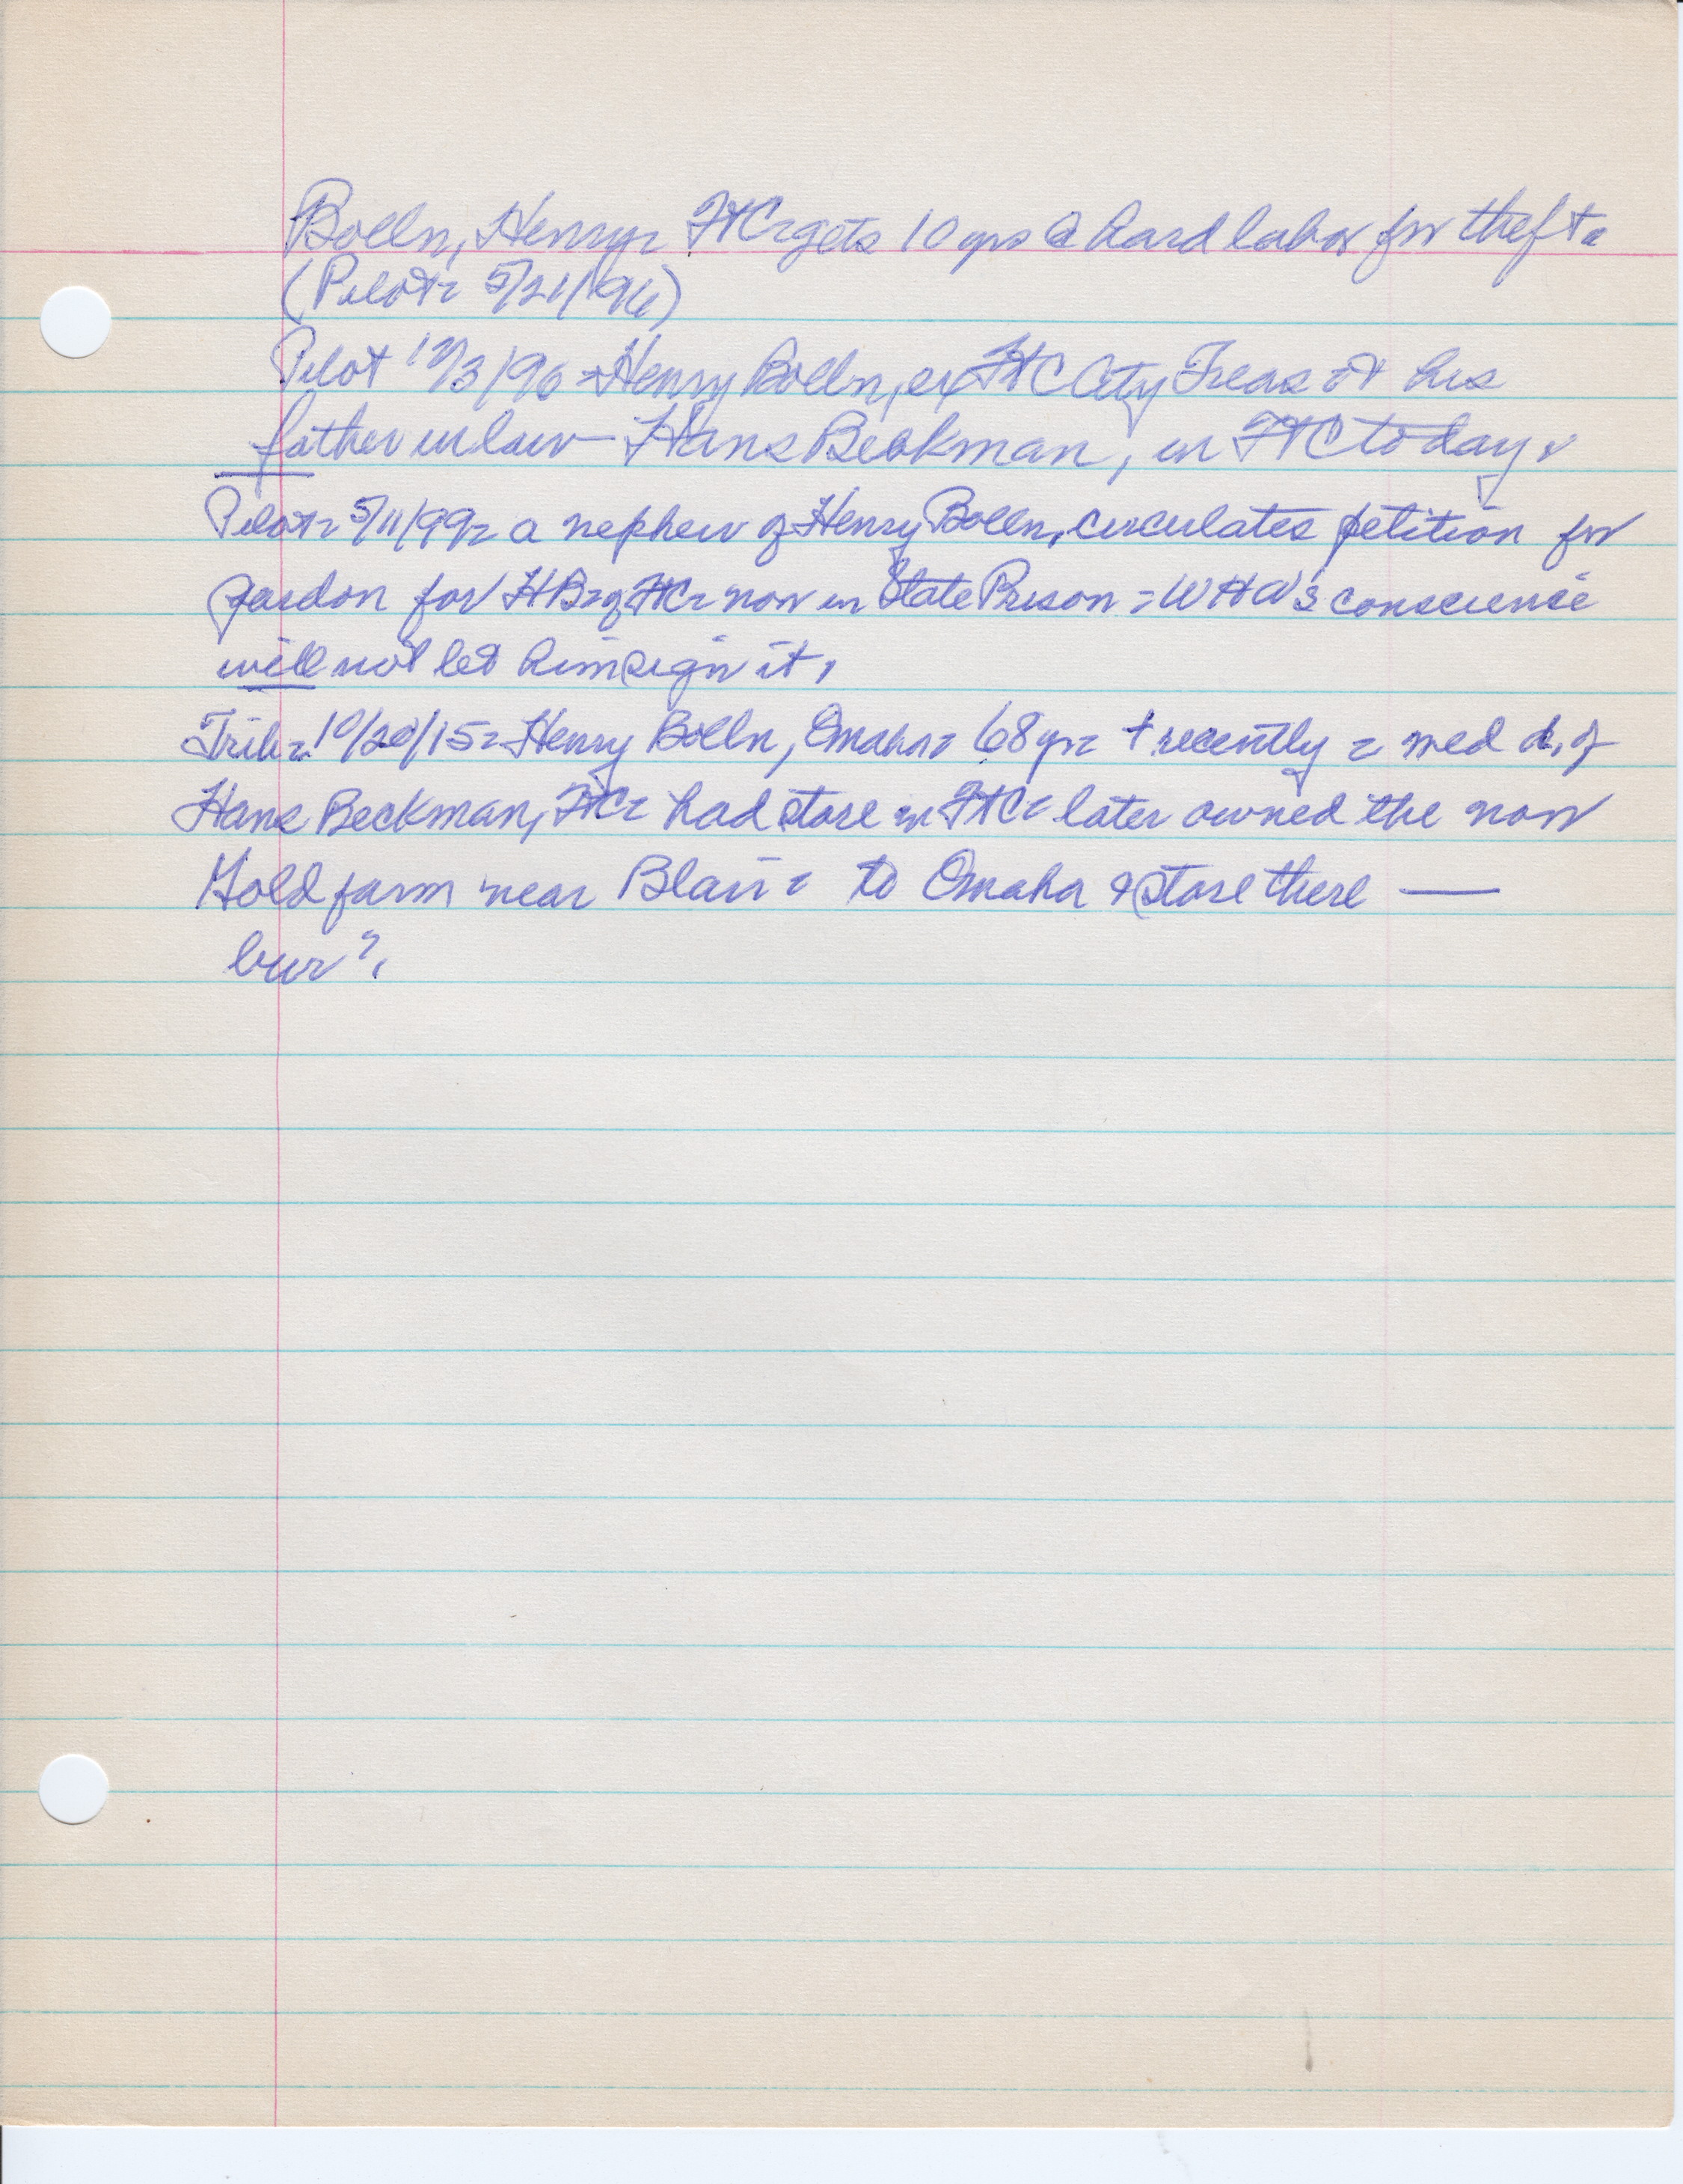 Bolln, Henry - FtC - gets 10 yrs @ hard labor for theft -
(Pilot - 5/21/96)
Pilot 12/3/96 - Henry Bolln, ex FtC City Treas & his
father in law - Hans Beckman, in FtC today.
Pilot - 5/11/99 - a nephew of Henry Bolln, circulates petition for
pardon for HB - of FtC - now in State Prison - WHW's conscience
will not let him sign it.
Trib - 10/20/15 - Henry Bolln, Omaha - 68 yr - + recently - med d. of
Hans Beckman, FtC - had store in FtC - later owned the now
Hold farm near Blair - to Omaha & store there —
bur?.